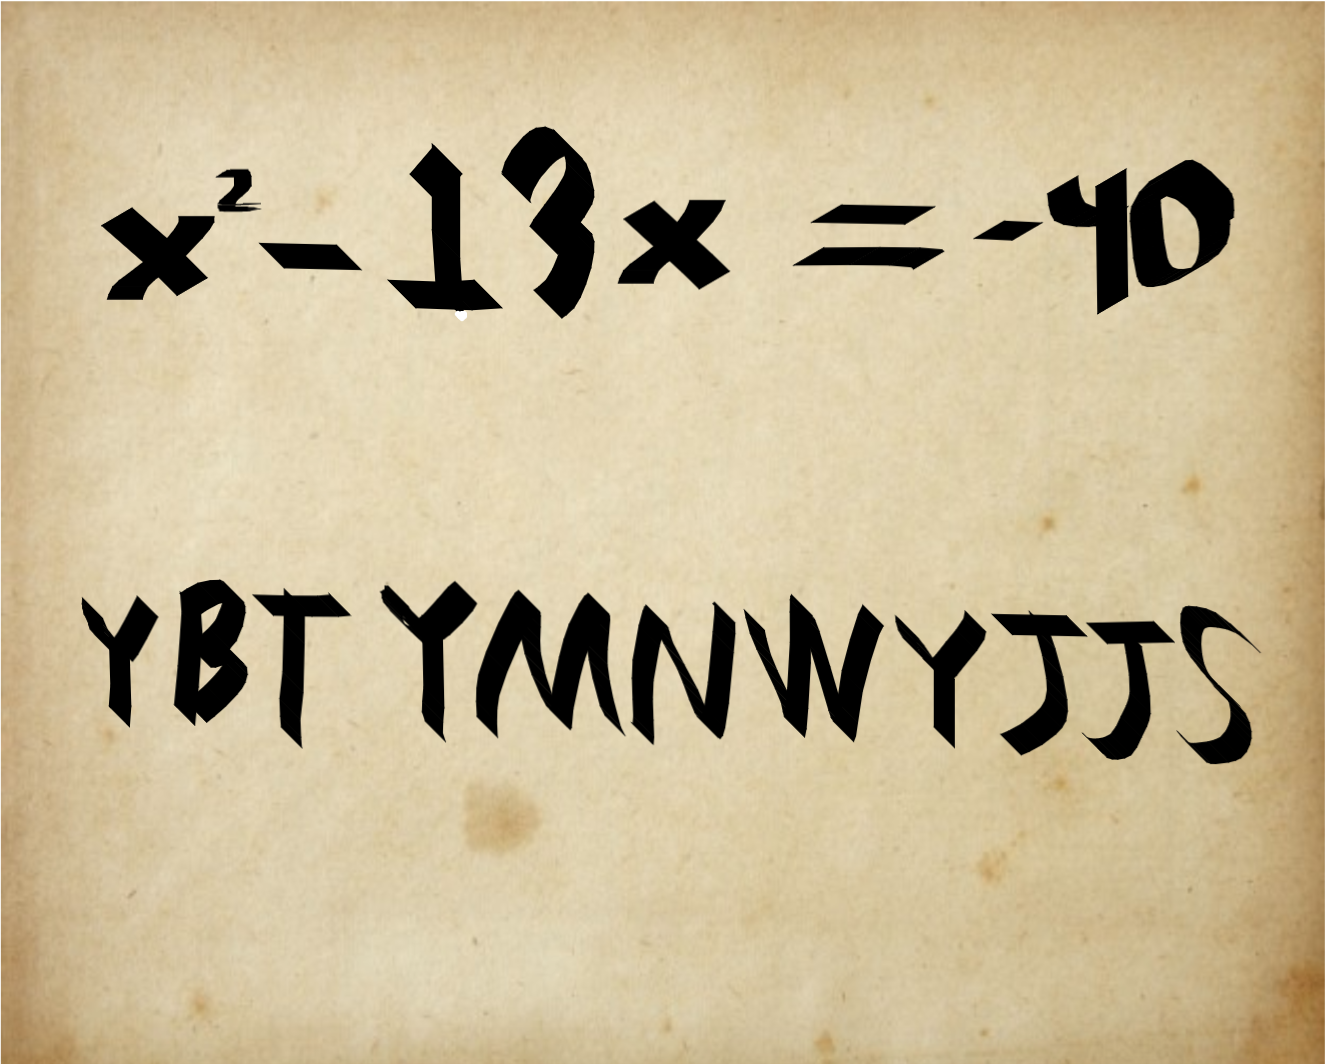 x² - 13x = -40
YBT YMNWYJJS